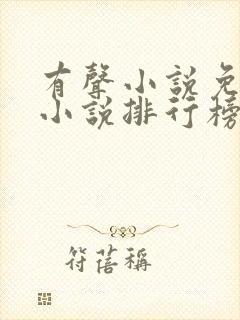 有聲小說免
小說排行榜
符蓓稱